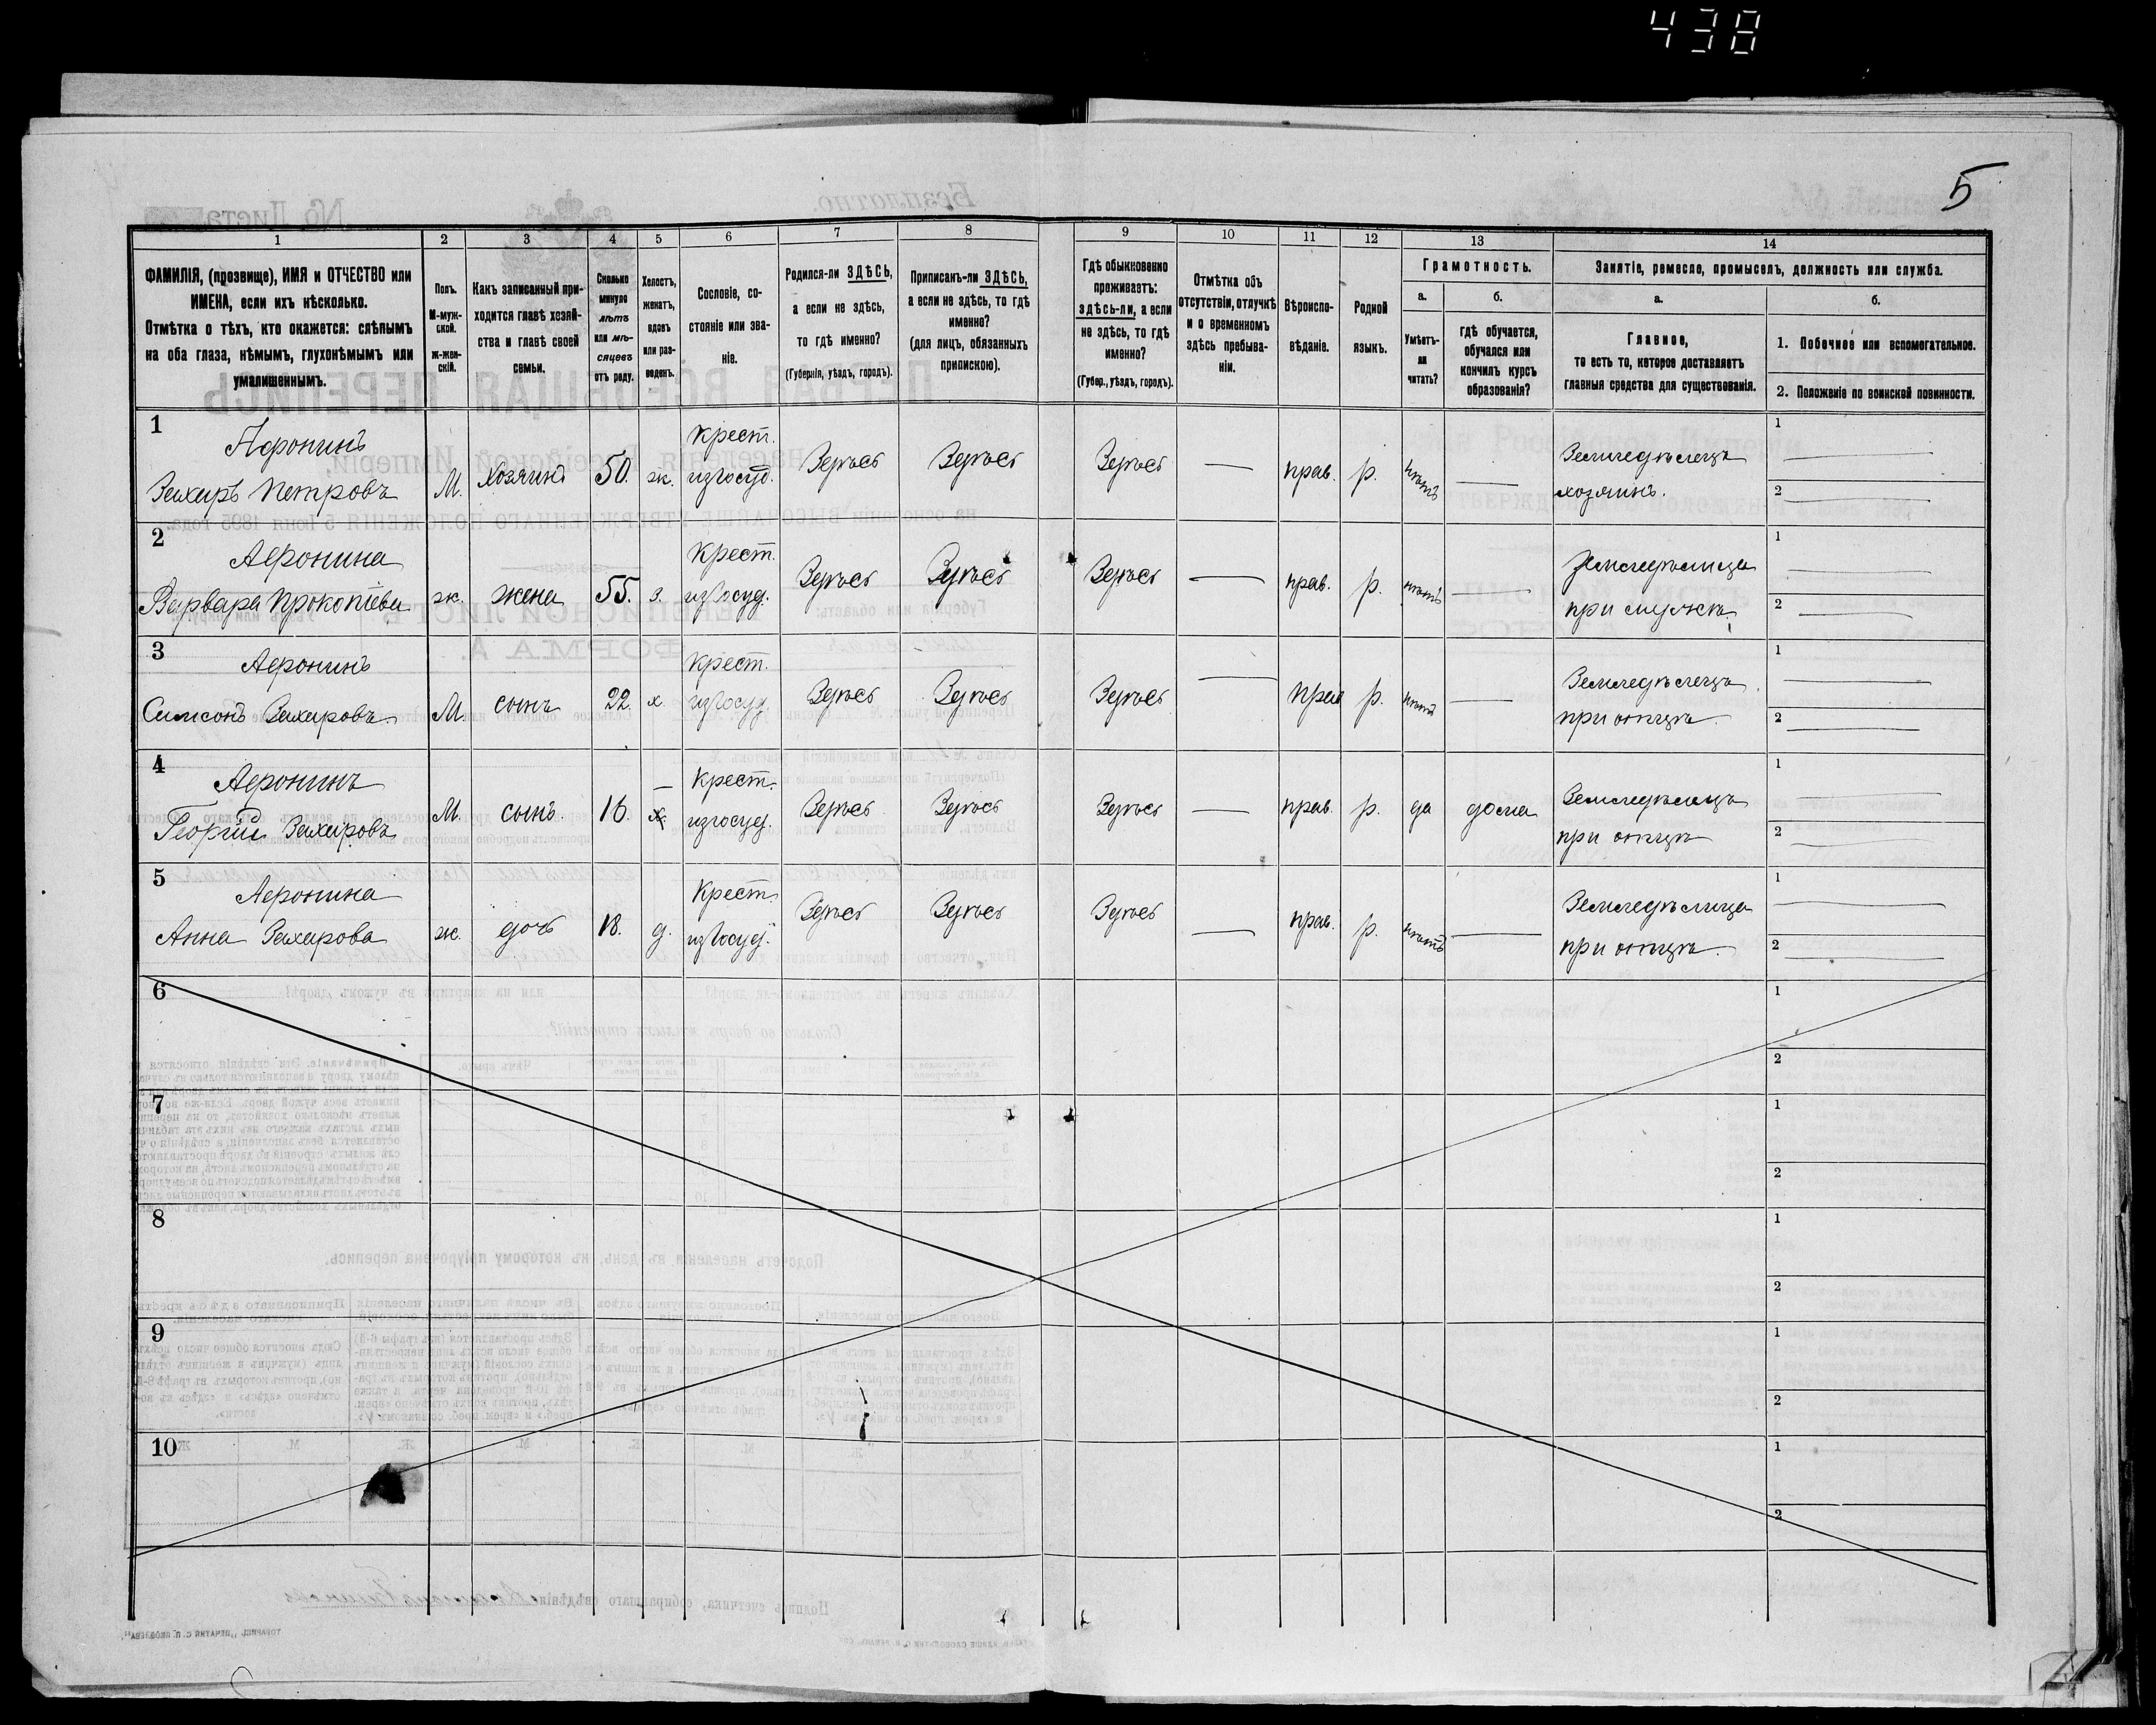 438
5
1
2
3
4
5
6
7
8
9
10
11
12
13
14
ФАМИЛІЯ, (прозвище), ИМЯ и ОТЧЕСТВО или
ИМЕНА, если ихъ нѣсколько.
Отмѣтка о тѣхъ, кто окажется: слѣпымъ
на оба глаза, нѣмымъ, глухонѣмымъ или
умалишеннымъ.
Полъ.
М-муж-
ской.
ж-жен-
скій.
Какъ записанный при-
ходится главѣ хозяй-
ства и главѣ своей
семьи.
Сколько
минуло
лѣтъ
или мѣ-
сяцевъ
отъ роду.
Холостъ,
женатъ,
вдовъ
или раз-
веденъ.
Сословіе, со-
стояніе или зва-
ніе.
Родился-ли ЗДѢСЬ,
а если не здѣсь,
то гдѣ именно?
(Губернія, уѣздъ, городъ).
Приписанъ-ли ЗДѢСЬ,
а если не здѣсь, то гдѣ
именно?
(для лицъ, обязанныхъ
припискою).
Гдѣ обыкновенно
проживаетъ:
здѣсь-ли, а если
не здѣсь, то гдѣ
именно?
(Губер., уѣздъ, городъ).
Отмѣтка объ
отсутствіи, отлучкѣ
и о временномъ
здѣсь пребыва-
ніи.
Вѣроиспо-
вѣданіе.
Родной
языкъ.
Грамотность.
а.
Умѣетъ-
ли
читать?
б.
гдѣ обучается,
обучался или
кончилъ курсъ
образованія?
Занятіе, ремесло, промыселъ, должность или служба.
а.
Главное,
то есть то, которое доставляетъ
главныя средства для существованія.
б.
1. Побочное или вспомогательное.
2. Положеніе по воинской повинности.
1
Петровъ
М.
Хозяинъ
50.
ж.
Крест.
изъ госуд.
Здѣсь
Здѣсь
Здѣсь
—
прав.
р.
нѣтъ
—
Земледѣлецъ
хозяинъ.
1 —
2 —
2
Варвара
ж.
жена
55.
з.
Крест.
изъ госуд.
Здѣсь
Здѣсь
Здѣсь
—
прав.
р.
нѣтъ
—
Земледѣлица
при мужѣ.
1 —
2 —
3
М.
сынъ
22.
х.
Крест.
изъ госуд.
Здѣсь
Здѣсь
Здѣсь
—
прав
р.
нѣтъ
—
Земледѣлецъ
при отцѣ.
1 —
2 —
4
Георгій
М.
сынъ.
16.
х.
Крест.
изъ госуд.
Здѣсь
Здѣсь
Здѣсь
—
прав.
р.
да
дома
Земледѣлецъ
при отцѣ
1 —
2 —
5
Анна
ж.
дочь
18.
д.
Крест.
изъ госуд.
Здѣсь
Здѣсь
Здѣсь
—
прав.
р.
нѣтъ
—
Земледѣлица
при отцѣ.
1 —
2 —
6
1
2
7
1
2
8
1
2
9
1
2
10
1
2